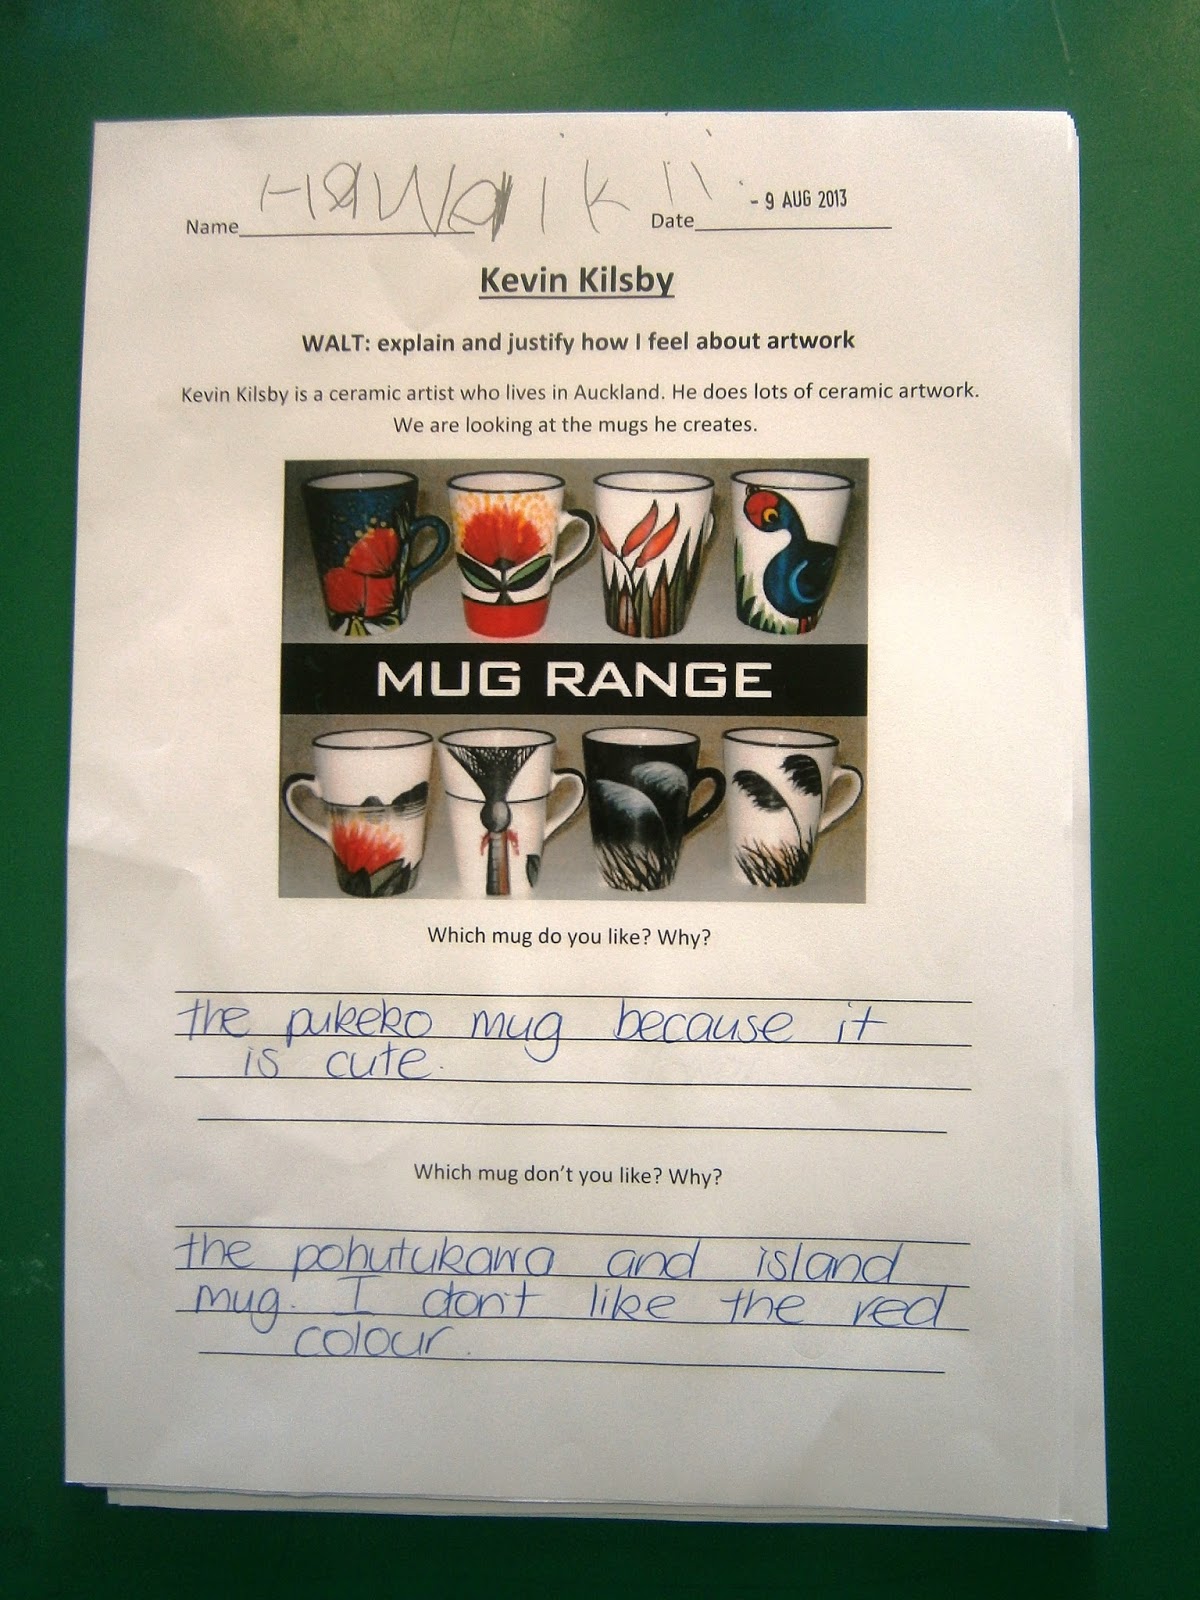 Name Hawaikii Date - 9 AUG 2013
Kevin Kilsby
WALT: explain and justify how I feel about artwork
Kevin Kilsby is a ceramic artist who lives in Auckland. He does lots of ceramic artwork.
We are looking at the mugs he creates.
MUG RANGE
Which mug do you like? Why?
the pukeko mug because it
is cute.
Which mug don't you like? Why?
the pohutukawa and island
mug. I don't like the red
colour.